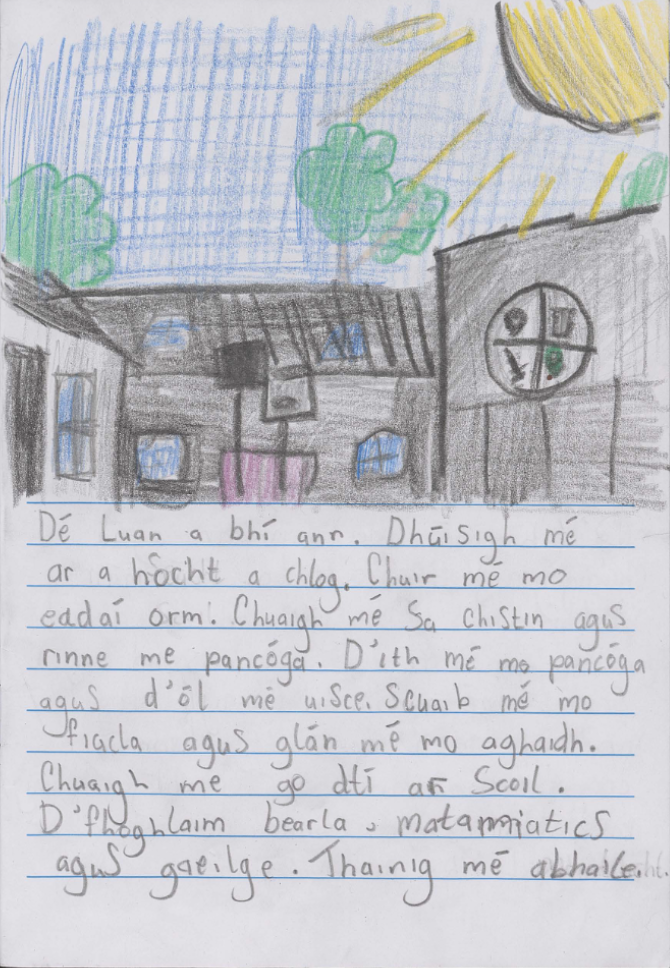 Dé Luan a bhí ann. Dhúisigh mé
ar a hocht a chlog. Chuir mé mo
eadaí orm. Chuaigh mé sa chistin agus
rinne me pancóga. D'ith mé mo pancóga
agus d'ól mé uisce. Scuaib mé mo
fiacla agus glán mé mo aghaidh.
Chuaigh me go dtí an Scoil.
D'fhoghlaim bearla, matamaiatics
agus gaeilge. Thainig mé abhaile.